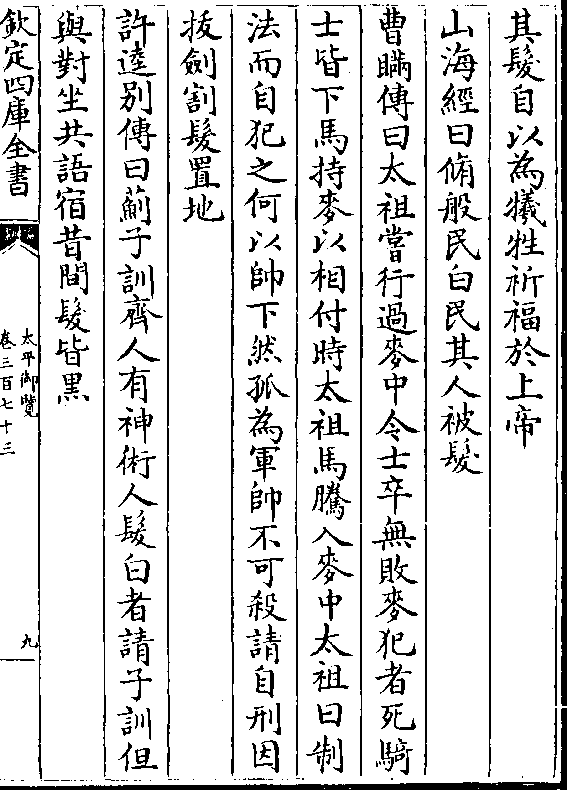 其髮自以為犧牲祈福於上帝
山海經曰脩般民白民其人被髮
曹瞞傳曰太祖嘗行過麥中令士卒無敗麥犯者死騎
士皆下馬持麥以相付時太祖馬騰入麥中太祖曰制
法而自犯之何以帥下然孤為軍帥不可殺請自刑因
拔劍割髮置地
許逵別傳曰薊子訓齊人有神術人髮白者請子訓但
與對坐共語宿昔間髮皆黑
欽定四庫全書
太平御覽
卷三百七十三
九